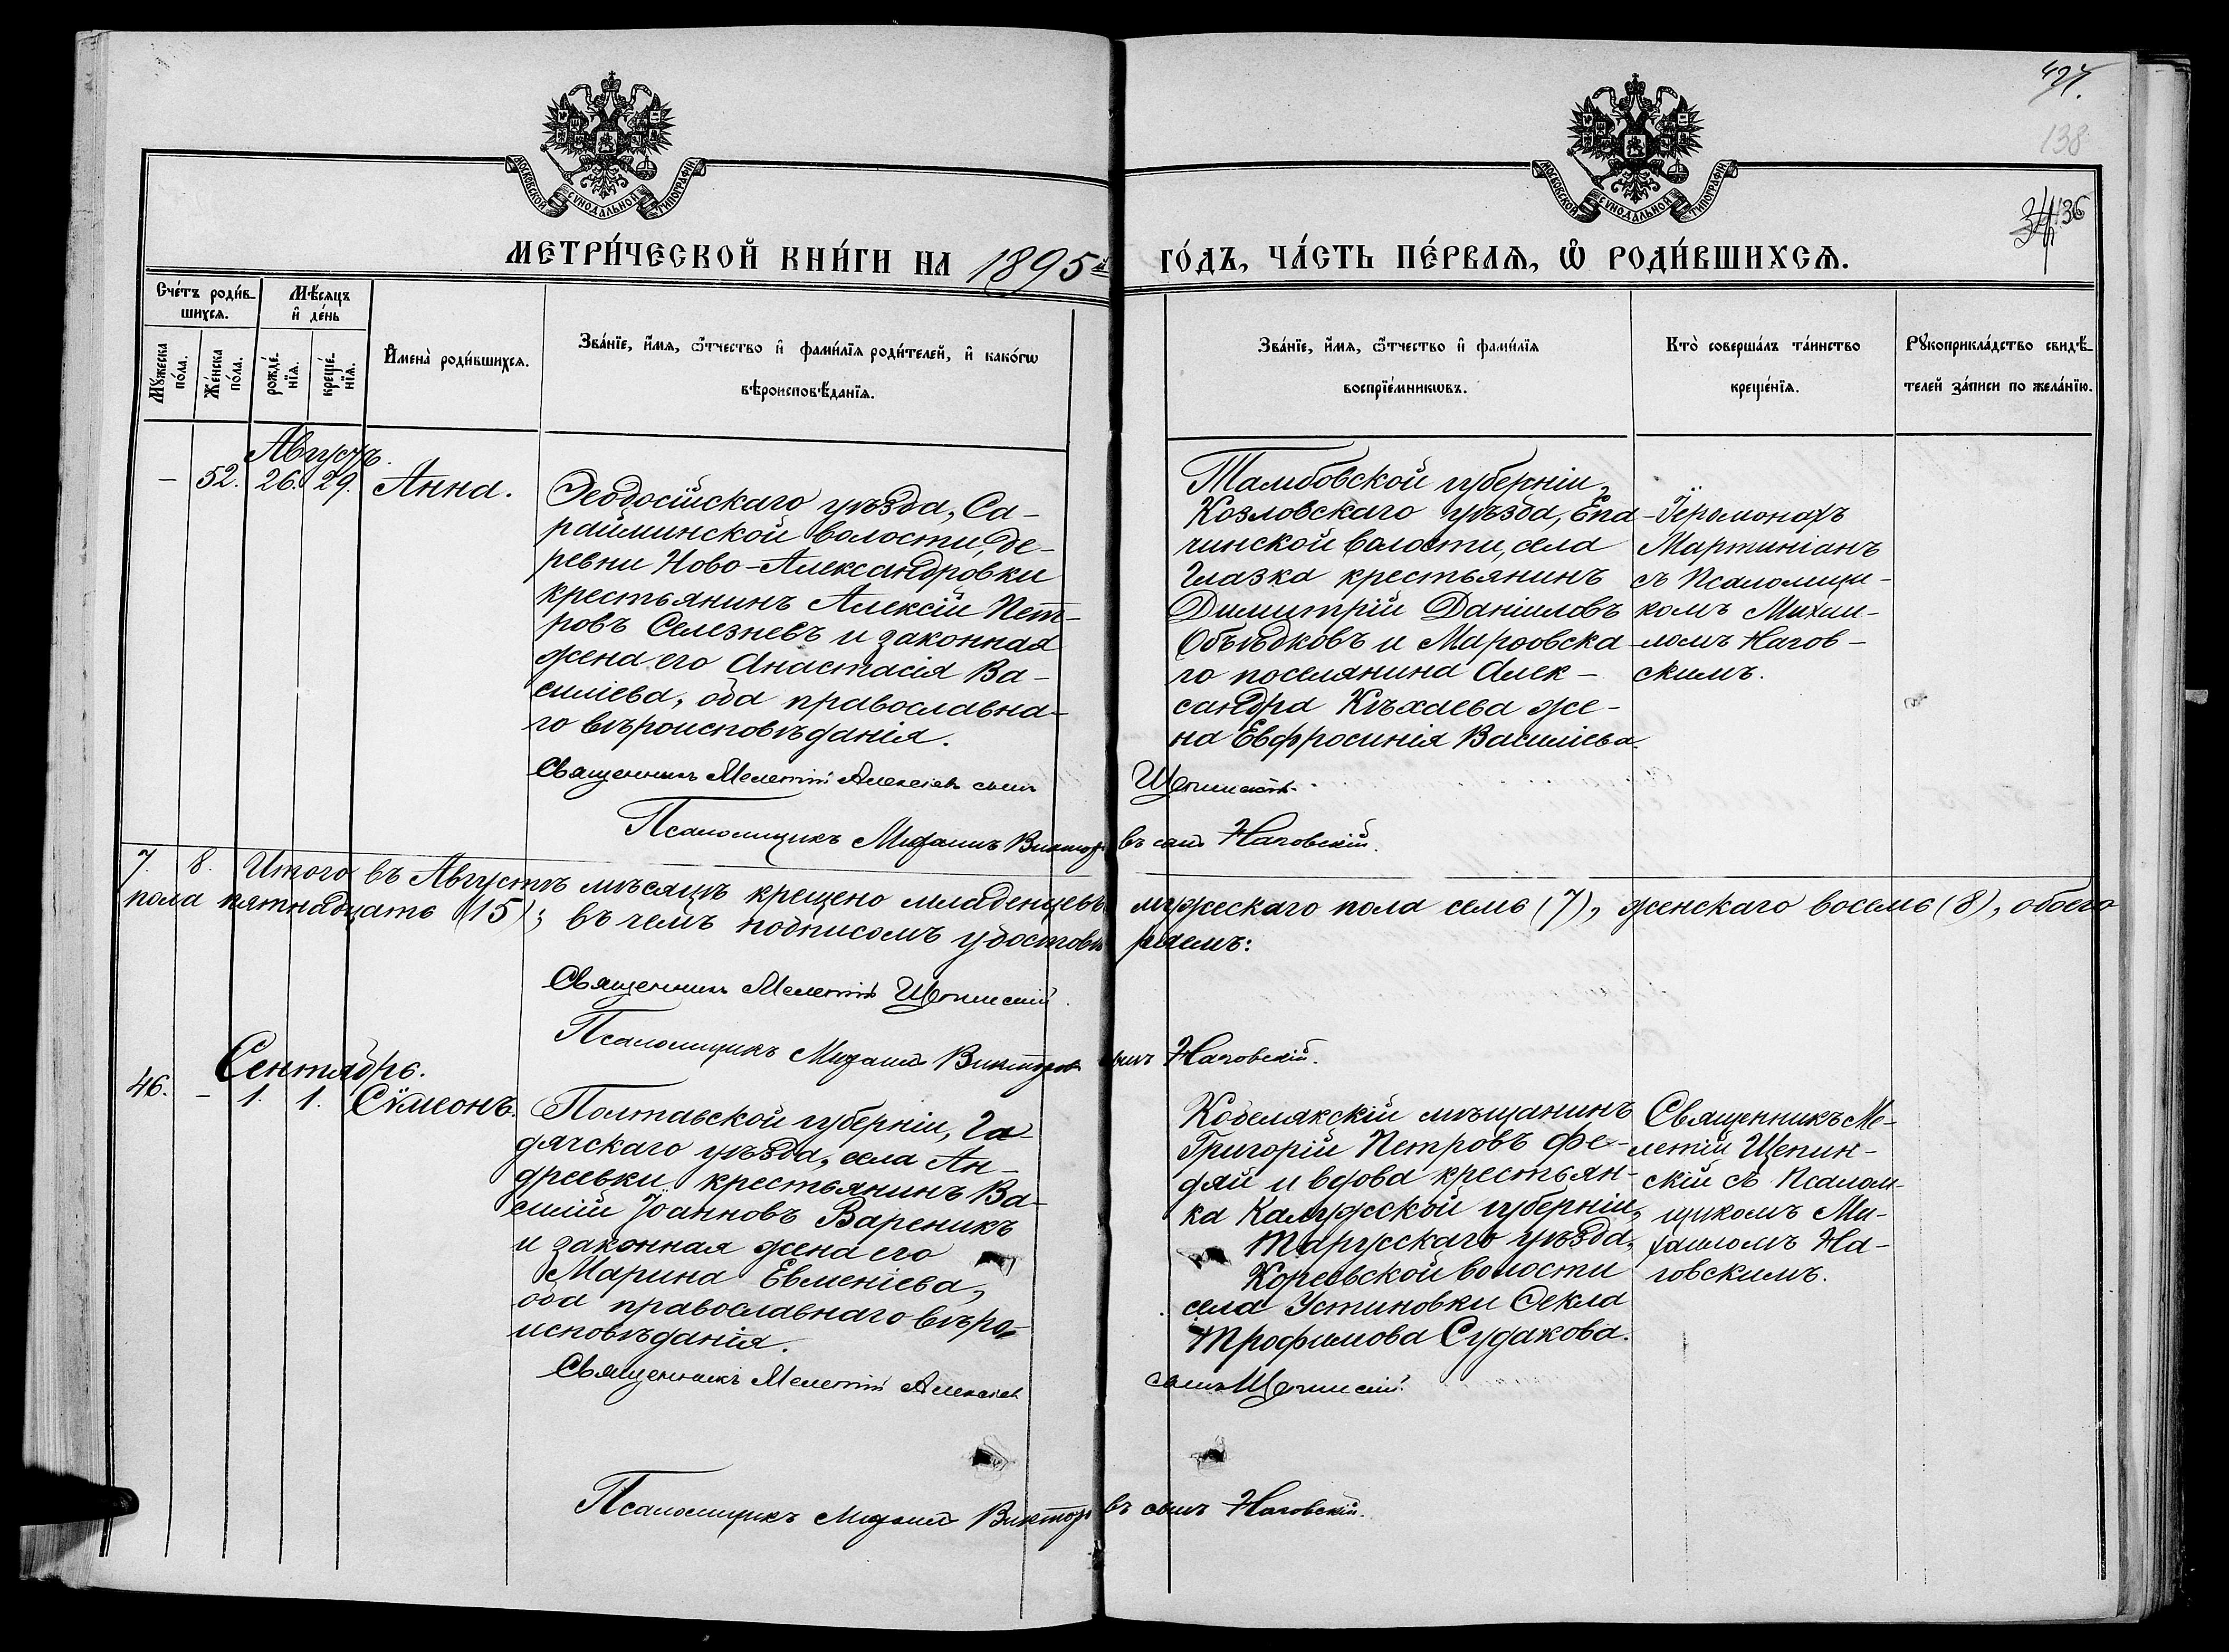 427.
138
34 136
МОСКОВСКОЙ СѴНОДАЛЬНОЙ ТИПОГРАФІИ
МОСКОВСКОЙ СѴНОДАЛЬНОЙ ТИПОГРАФІИ
МЕТРИ́ЧЕСКОЙ КНИ́ГИ НА 1895й ГО́ДЪ, ЧА́СТЬ ПЕ́РВАѦ, Ѡ҆ РОДИ́ВШИХСѦ.
Сче́тъ роди́в-
шихсѧ.
Мѣ́сѧцъ
и҆ де́нь
Мꙋ́жеска
по́ла.
Же́нска
по́ла.
рожде́-
нїѧ.
креще́-
нїѧ.
И҆мена̀ роди́вшихсѧ.
Зва́нїе, и҆́мѧ, ѻ҆́тчество и҆ фами́лїѧ роди́телей, и҆ како́гѡ
вѣроисповѣ́данїѧ.
Зва́нїе, и҆́мѧ, ѻ҆́тчество и҆ фами́лїѧ
воспрїе́мникѡвъ.
Кто̀ соверша́лъ та́инство
креще́нїѧ.
Рꙋкоприкла́дство свидѣ́-
телей за́писи по жела́нїю.
Августъ.
— 52. 26. 29. Анна.
Ѳеодосійскаго уѣзда, Са-
райминской волости, де-
ревни Ново-Александровки
крестьянинъ Алексій Пет-
ровъ Селезневъ и законная
жена его Анастасія Ва-
силіева, оба православна-
го вѣроисповѣданія.
Тамбовской губерніи,
Козловскаго уѣзда, Епа-
чинской волости, села
Глазка крестьянинъ
Димитрій Даніиловъ
Объѣдковъ и
го поселянина Алек-
сандра Кѣхаева же-
на Евфросинія Василіева.
Іеромонахъ
Мартиніанъ
съ Псаломщи-
комъ Михаи-
ломъ Нагов-
скимъ.
Священникъ Мелетій Алексіевъ сынъ Щепинскій.
Псаломщикъ Михаилъ Викторовъ сынъ Наговскій.
7. 8. Итого въ Августѣ мѣсяцѣ крещено младенцевъ мужескаго пола семь (7), женскаго восемь (8), обоего
пола пятнадцать (15); въ чемъ подписомъ удостовѣряемъ:
Священникъ Мелетій Щепинскій.
Псаломщикъ Михаилъ Викторовъ сынъ Наговскій.
Сентябрь.
46. — 1. 1. Сѵмеонъ.
Полтавской губерніи, Га-
дячскаго уѣзда, села Ан-
дреевки крестьянинъ Ва-
силій Іоанновъ Вареникъ
и законная жена его
Марина Евменіева,
оба православнаго вѣро-
исповѣданія.
Кобелякскій мѣщанинъ
Григорій Петровъ Фе-
дяй и вдова крестьян-
ка Калужской губерніи,
Тарусскаго уѣзда,
Кореевской волости
села Устиновки Ѳекла
Трофимова Судакова.
Священникъ Ме-
летій Щепин-
скій съ Псалом-
щикомъ Ми-
хаиломъ На-
говскимъ.
Священникъ Мелетій Алексіевъ сынъ Щепинскій.
Псаломщикъ Михаилъ Викторовъ сынъ Наговскій.